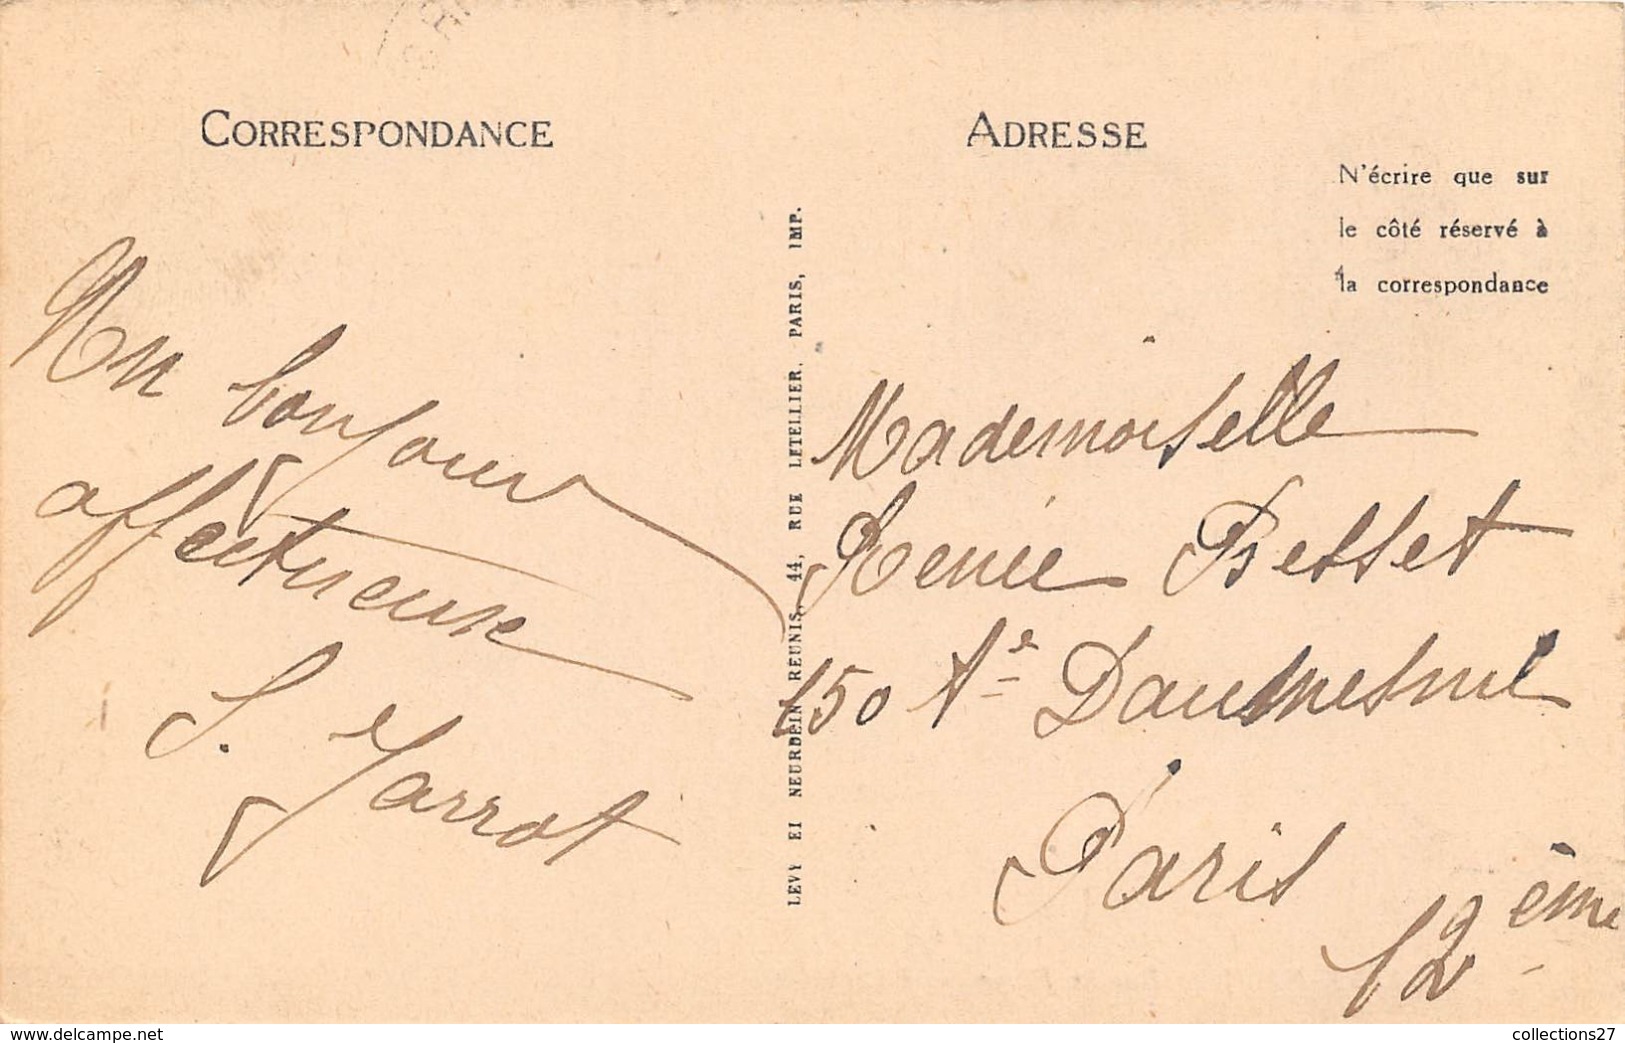 CORRESPONDANCE
Un bonjour
affectueux
S. Jarrot
LEVY ET NEURDEIN REUNIS, 44, RUE LETELLIER, PARIS, IMP.
ADRESSE
N'écrire que sur
le côté réservé à
la correspondance
Mademoiselle
Renée Besset
150 Ae Daumesnil
Paris
12ème
www.delcampe.net
collections27